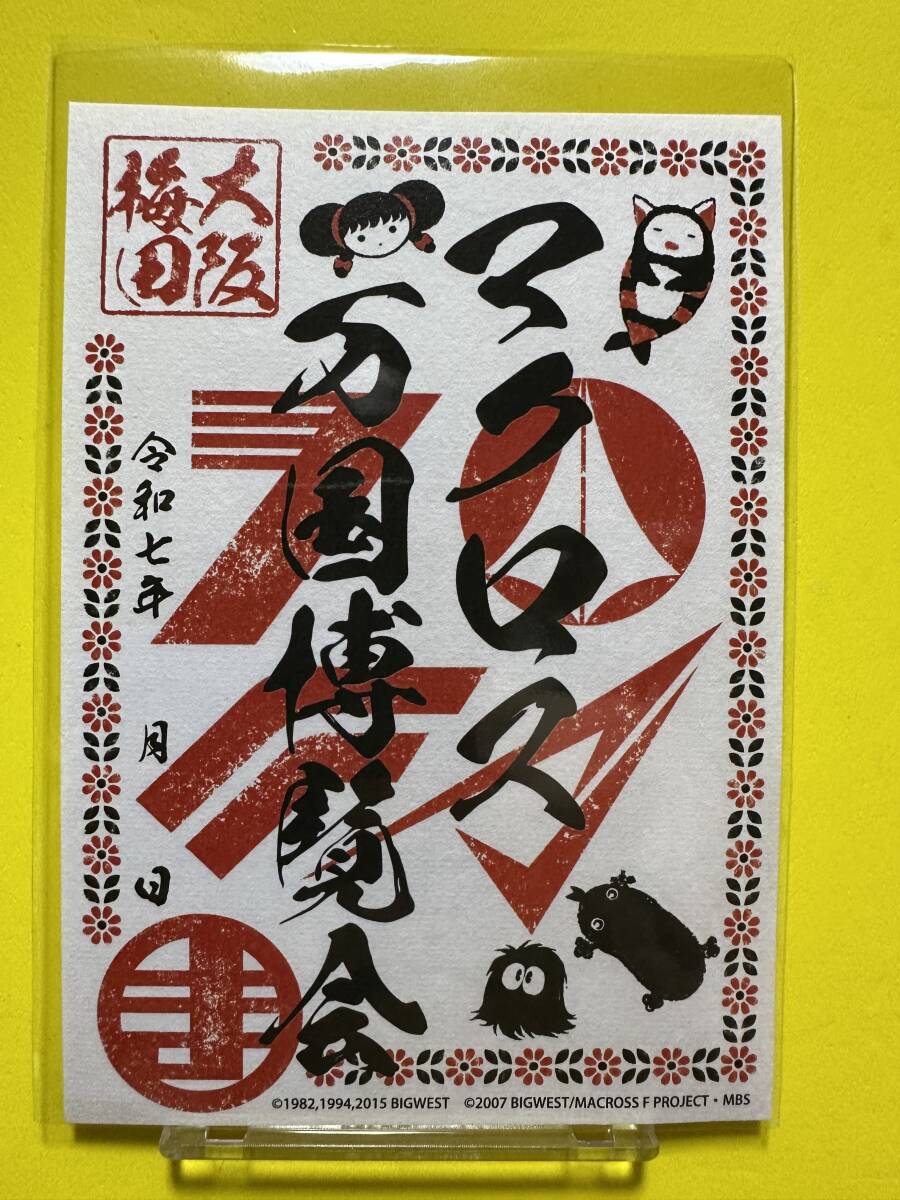 マクロス
万国博覧会
大阪
梅田
令和七年 月 日
©1982,1994,2015 BIGWEST ©2007 BIGWEST/MACROSS F PROJECT・MBS